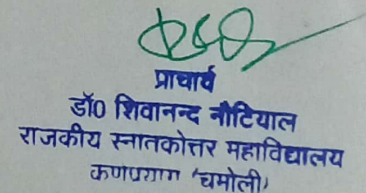 प्राचार्य
डॉ0 शिवानन्द नौटियाल
राजकीय स्नातकोत्तर महाविद्यालय
कर्णप्रयाग (चमोली)